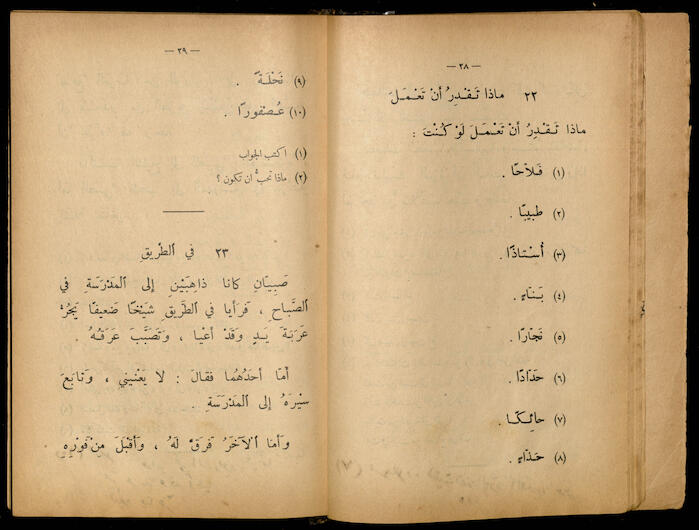 — ٢٨ —
٢٢ ماذا تَقْدِرُ أَنْ تَعْمَلَ
ماذا تَقْدِرُ أَنْ تَعْمَلَ لَوْ كُنْتَ :
(١) فَلاَّحًا .
(٢) طبيبًا .
(٣) أُسْتاذًا .
(٤) بَنّاءٍ .
(٥) نَجّارًا .
(٦) حَدّادًا .
(٧) حائِكًا .
(٨) حَذّاءٍ .
— ٢٩ —
(٩) نَحْلَةً .
(١٠) عُصْفورًا .
(١) اكتب الجواب
(٢) ماذا تحبُّ ان تكون ؟
٢٣ في الطَّريقِ
صَبِيّانِ كانا ذاهِبَيْنِ إلى المَدْرَسَةِ في
الصَّباحِ ، فَرَأَيا في الطَّريقِ شَيْخًا ضَعيفًا يَجُرُّ
عَرَبَةَ يَدٍ وَقَدْ أَعْيا ، وَتَصَبَّبَ عَرَقُهُ .
أَمّا أَحَدُهُما فَقالَ : لا يَعْنيني ، وَتابَعَ
سَيْرَهُ إلى المَدْرَسَةِ .
وَأَمّا الآخَرُ فَرَقَّ لَهُ ، وَأَقْبَلَ مِنْ فَوْرِهِ